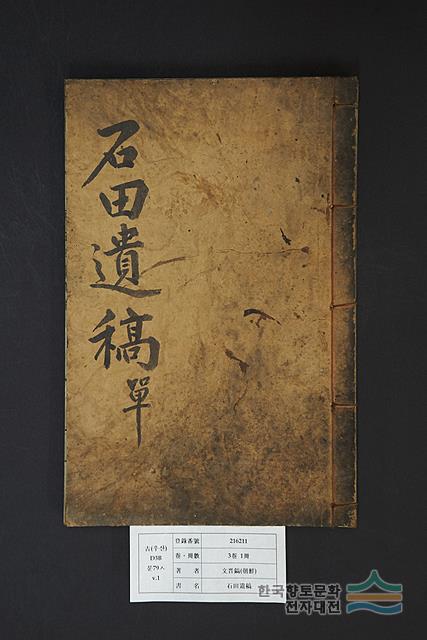 石田遺稿單
古(우산)
D3B
문79ㅅ
v.1
登錄番號 216211
卷·冊數 3卷 1冊
著者 文晋鎬(朝鮮)
書名 石田遺稿
한국향토문화
전자대전